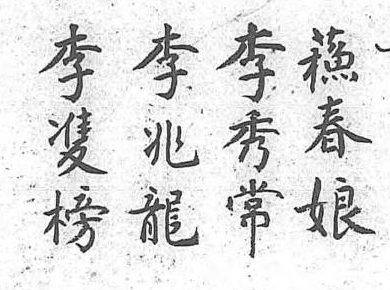 蘓春娘
李秀常
李兆龍
李雙榜